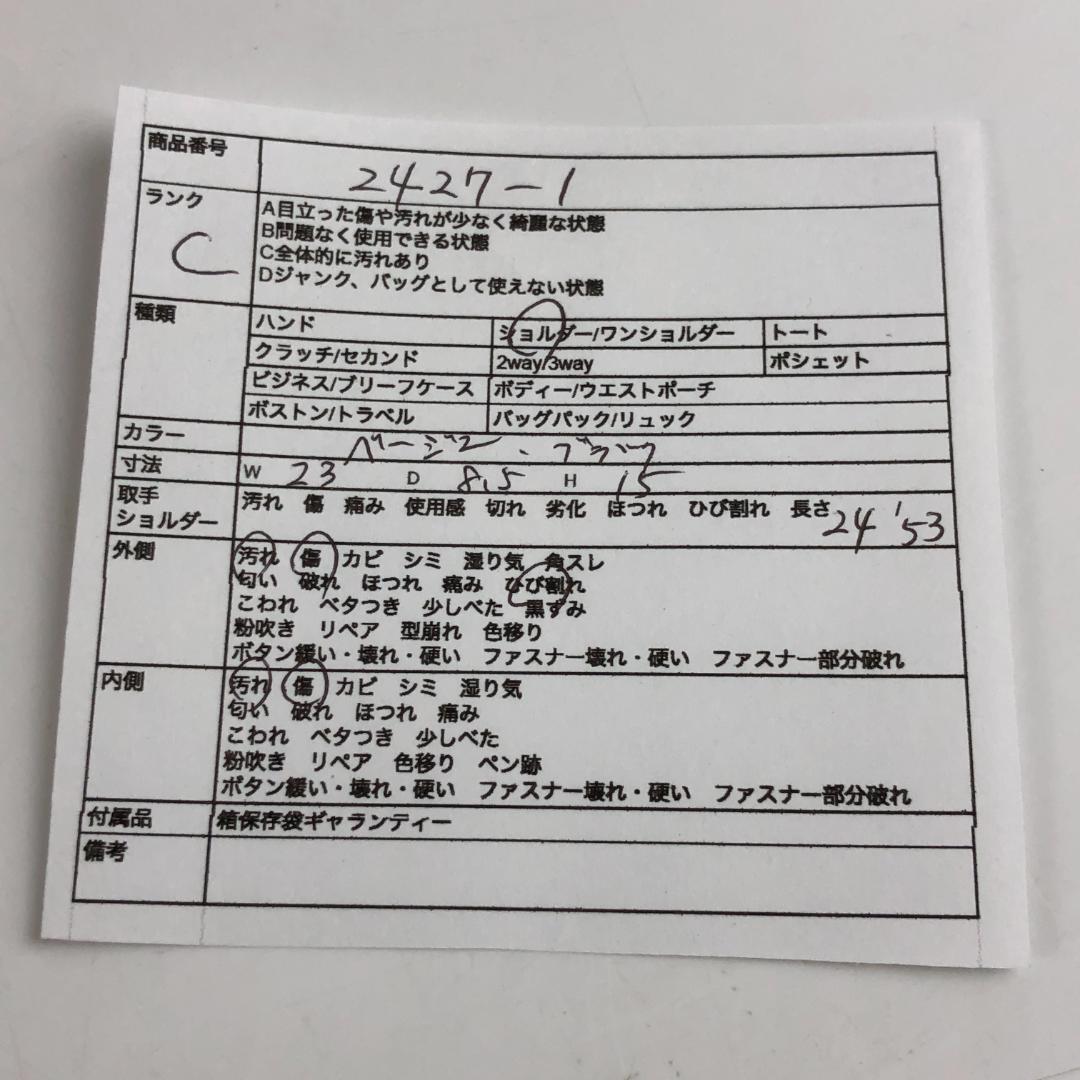 商品番号 2427-1
ランク C
A目立った傷や汚れが少なく綺麗な状態
B問題なく使用できる状態
C全体的に汚れあり
Dジャンク、バッグとして使えない状態
種類 ハンド ショルダー/ワンショルダー トート
クラッチ/セカンド 2way/3way ポシェット
ビジネス/ブリーフケース ボディー/ウエストポーチ
ボストン/トラベル バッグパック/リュック
カラー ベージュ、ブラック
寸法 W 23 D 8.5 H 15
取手 汚れ 傷 痛み 使用感 切れ 劣化 ほつれ ひび割れ 長さ 24 '53
ショルダー
外側 汚れ 傷 カビ シミ 湿り気 角スレ
匂い 破れ ほつれ 痛み ひび割れ
こわれ ベタつき 少しべた 黒ずみ
粉吹き リペア 型崩れ 色移り
ボタン緩い・壊れ・硬い ファスナー壊れ・硬い ファスナー部分破れ
内側 汚れ 傷 カビ シミ 湿り気
匂い 破れ ほつれ 痛み
こわれ ベタつき 少しべた
粉吹き リペア 色移り ペン跡
ボタン緩い・壊れ・硬い ファスナー壊れ・硬い ファスナー部分破れ
付属品 箱保存袋ギャランティー
備考